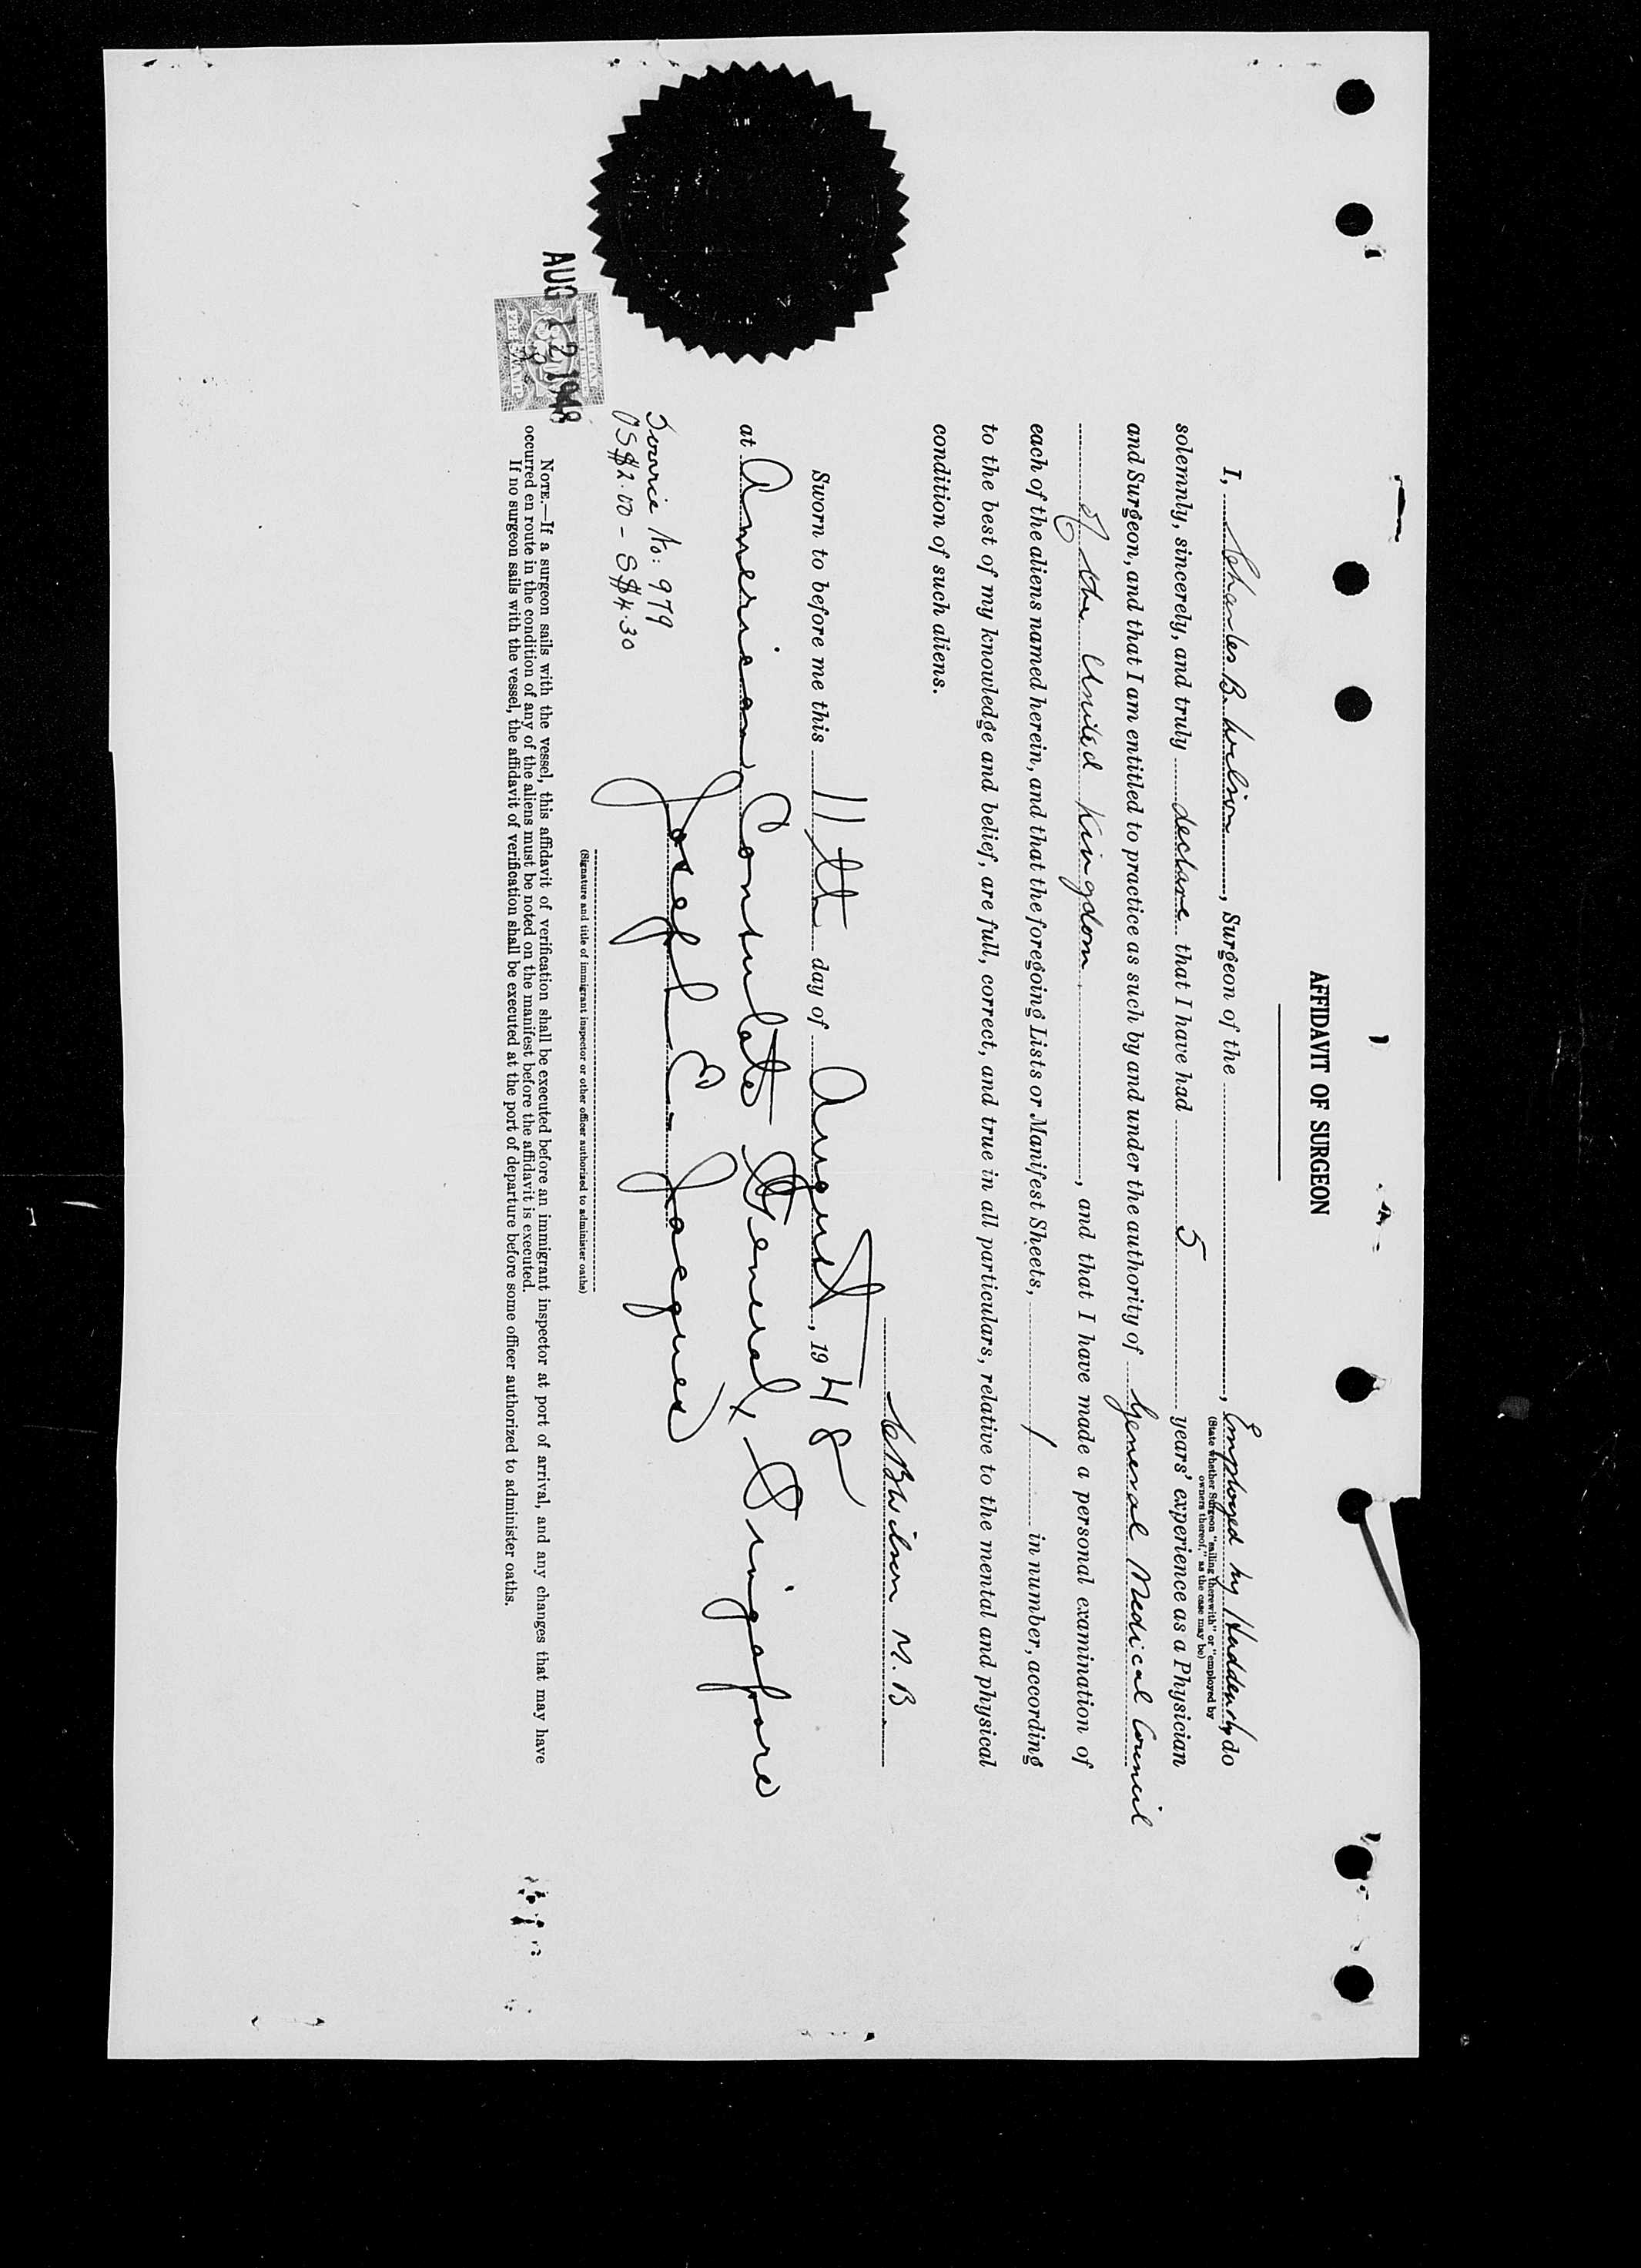 AFFIDAVIT OF SURGEON
I, Charles B. Wilson, Surgeon of the , Employed by do
(State whether Surgeon "sailing therewith" or "employed by
owners thereof," as the case may be)
solemnly, sincerely, and truly declare that I have had 5 years' experience as a Physician
and Surgeon, and that I am entitled to practice as such by and under the authority of General Medical Council
of the United Kingdom, and that I have made a personal examination of
each of the aliens named herein, and that the foregoing Lists or Manifest Sheets, 1 in number, according
to the best of my knowledge and belief, are full, correct, and true in all particulars, relative to the mental and physical
condition of such aliens.
C B Wilson M.B
Sworn to before me this 11th day of August, 19 48
at American Consulate General, Singapore
Joseph E. Jacques
(Signature and title of immigrant inspector or other officer authorized to administer oaths)
Service No: 979
US$2.00 - S$4.30
AUG 12 1948
NOTE.—If a surgeon sails with the vessel, this affidavit of verification shall be executed before an immigrant inspector at port of arrival, and any changes that may have
occurred en route in the condition of any of the aliens must be noted on the manifest before the affidavit is executed.
If no surgeon sails with the vessel, the affidavit of verification shall be executed at the port of departure before some officer authorized to administer oaths.